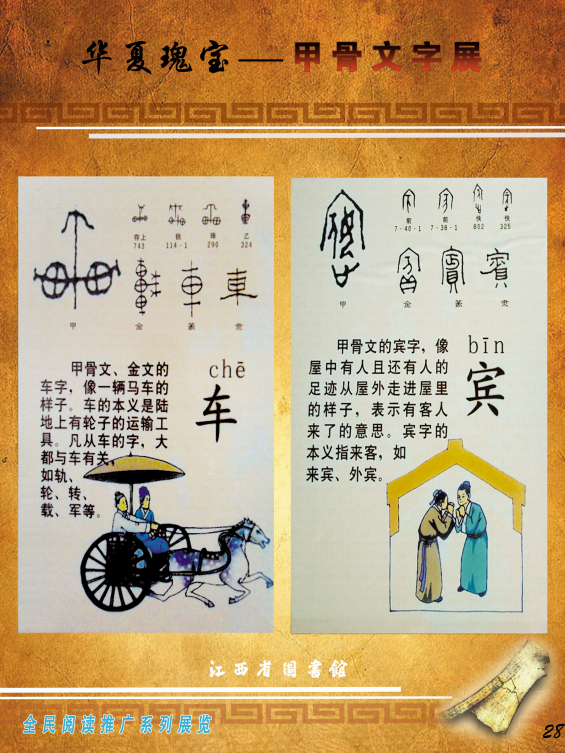 华夏瑰宝——甲骨文字展
存上 铁 珠 乙
743 114·1 290 324
甲 金 篆 隶
chē
车
甲骨文、金文的
车字，像一辆马车的
样子。车的本义是陆
地上有轮子的运输工
具。凡从车的字，大
都与车有关，
如轨、
轮、转、
载、军等。
前 前 佚 佚
7·40·1 7·38·1 802 325
甲 金 篆 隶
bīn
宾
甲骨文的宾字，像
屋中有人且还有人的
足迹从屋外走进屋里
的样子，表示有客人
来了的意思。宾字的
本义指来客，如
来宾、外宾。
江西省图書館
全民阅读推广系列展览
28